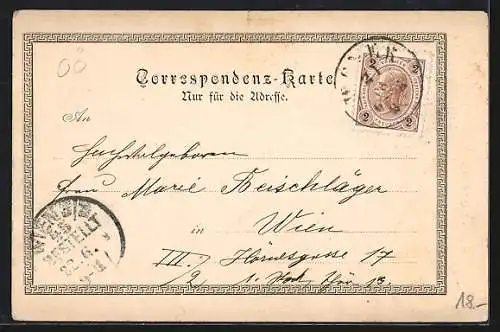 00
Correspondenz-Karte
Nur für die Adresse.
An
Hochwohlgeboren
Frau Marie Feischläger
in Wien
III. Hörnesgasse 17
/2 1. Stock, Thür 13.
WIEN
BESTELLT
2 2
2 2
18.-